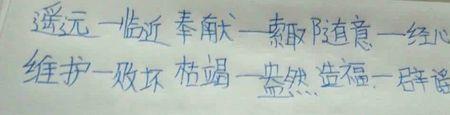 遥远—临近 奉献—索取 随意—经心
维护—败坏 枯竭—盎然 造福—辟谣